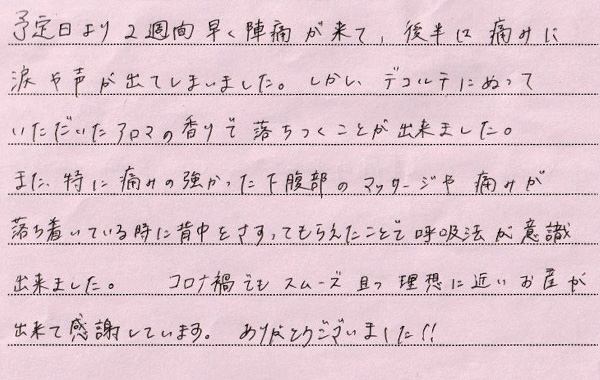 予定日より2週間早く陣痛が来て、後半は痛みに
涙や声が出てしまいました。しかし、デコルテにぬって
いただいたアロマの香りで落ちつくことが出来ました。
また、特に痛みの強かった下腹部のマッサージや痛みが
落ち着いている時に背中をさすってもらえたことで呼吸法が意識
出来ました。 コロナ禍でもスムーズ且つ理想に近いお産が
出来て感謝しています。 ありがとうございました!!